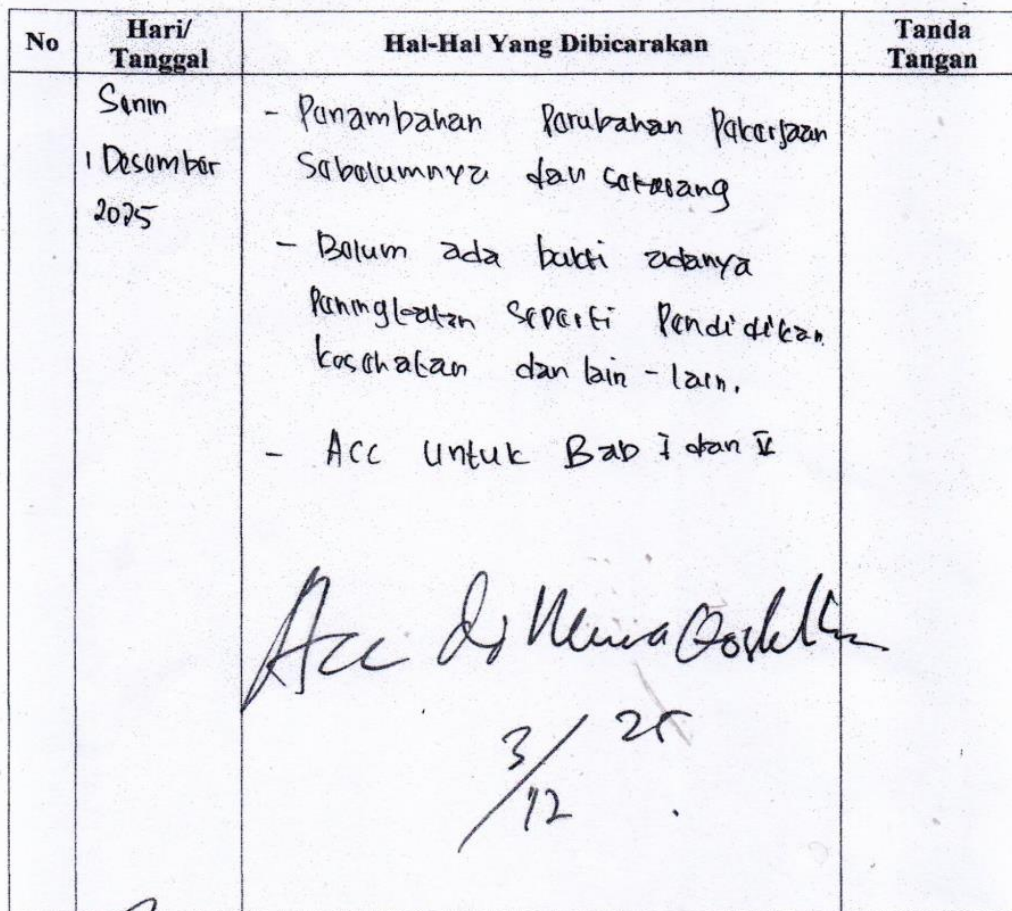 No
Hari/
Tanggal
Hal-Hal Yang Dibicarakan
Tanda
Tangan
Senin
1 Desember
2025
- Penambahan Perubahan Pekerjaan
Sebelumnya dan sekarang
- Belum ada bukti adanya
Peningkatan Seperti Pendidikan
kesehatan dan lain - lain.
- Acc untuk Bab I dan V
Acc di
3/12 25